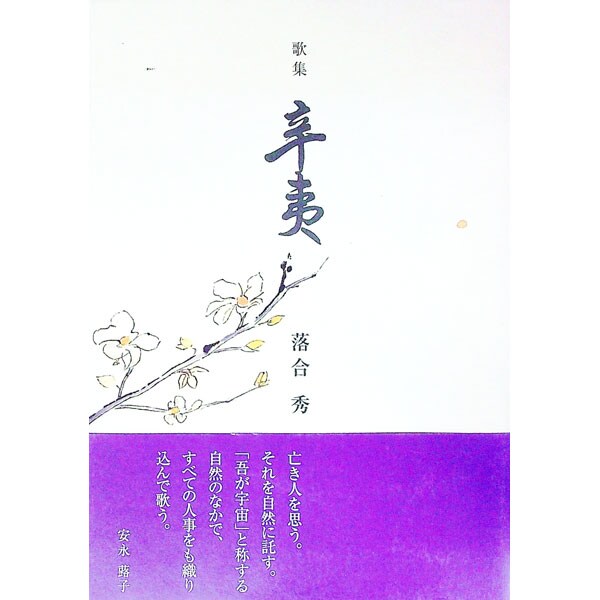 歌集
辛夷
落合 秀
亡き人を思う。
それを自然に託す。
「吾が宇宙」と称する
自然のなかで、
すべての人事をも織り
込んで歌う。
安永 蕗子